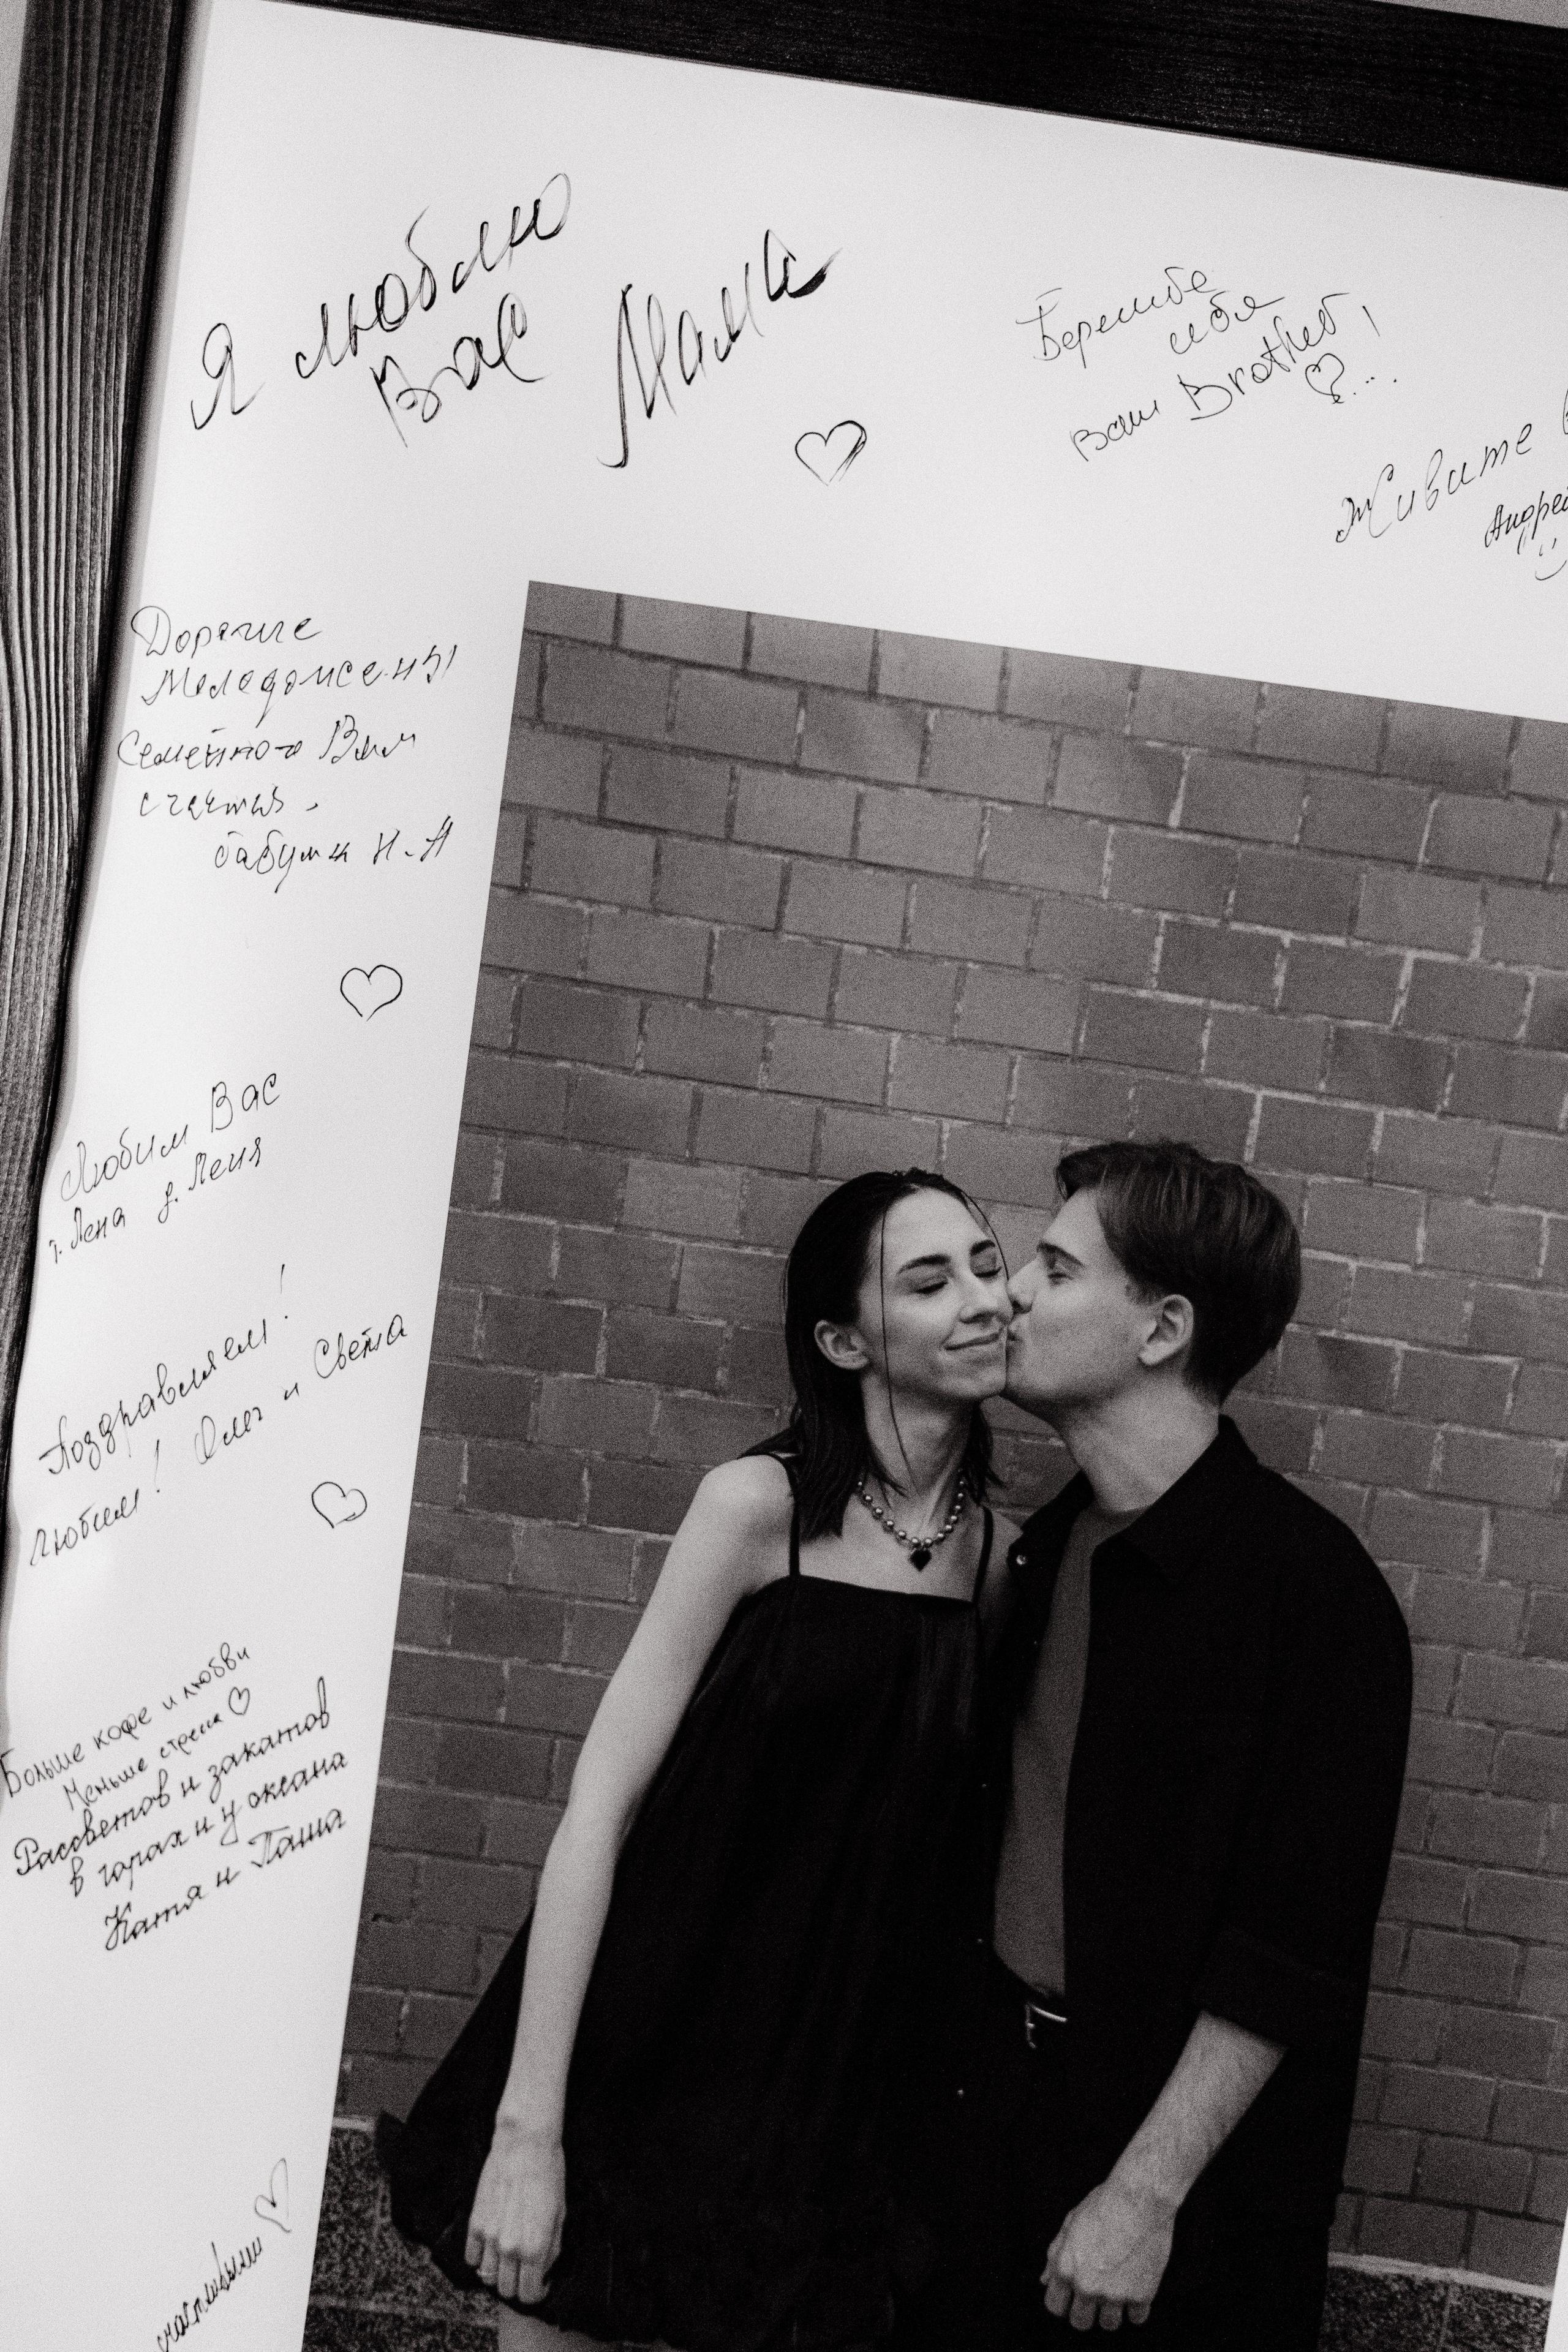 Я люблю
Вас
Мама
Берегите
себя
Ваш Brother!
Живите
Андрей
Дорогие
Молодожены
Семейного Вам
счастья.
бабушка Н.Н
Любим Вас
т. Лена д. Леня
Поздравляем!
Любим! Олег и Света
Больше кофе и любви
Меньше стресса
Рассветов и закатов
в горах и у океана
Катя и Паша
счастливыми